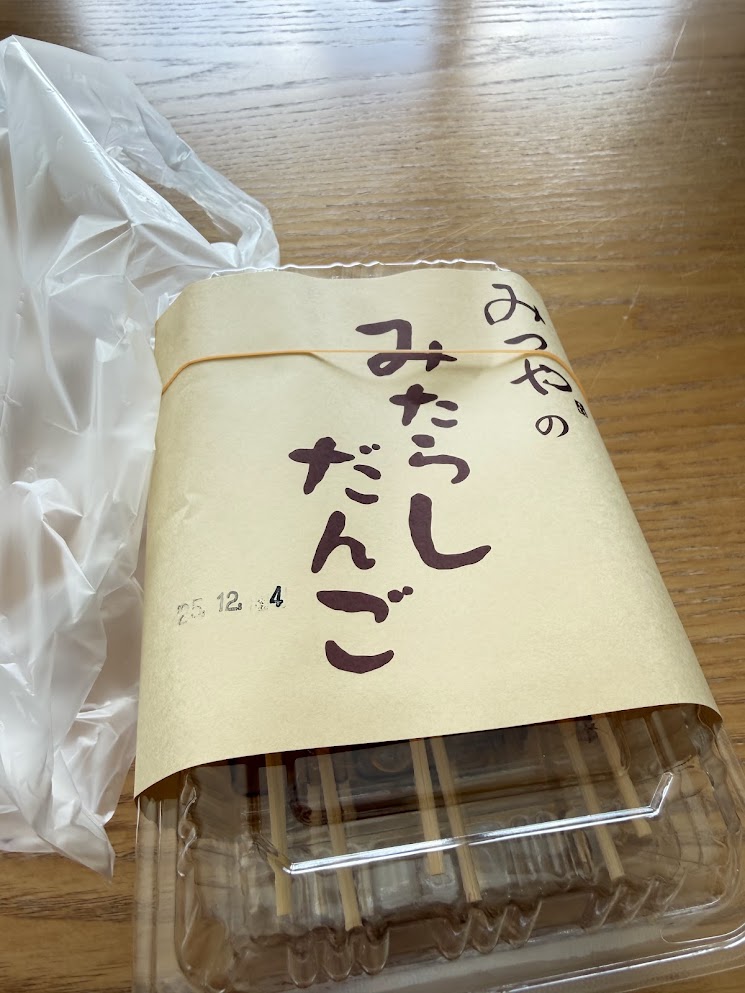 みつやの
みたらし
だんご
25.12.-4